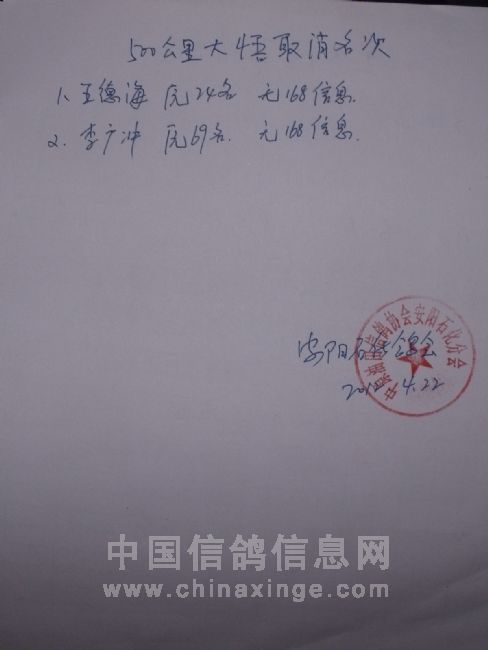 500公里大悟取消名次
1、王德海 原24名 无168信息.
2. 李广冲 原69名. 无168信息.
信鸽协会安阳石化分会
安阳石化鸽会
2012.4.22
中国信鸽信息网
www.chinaxinge.com